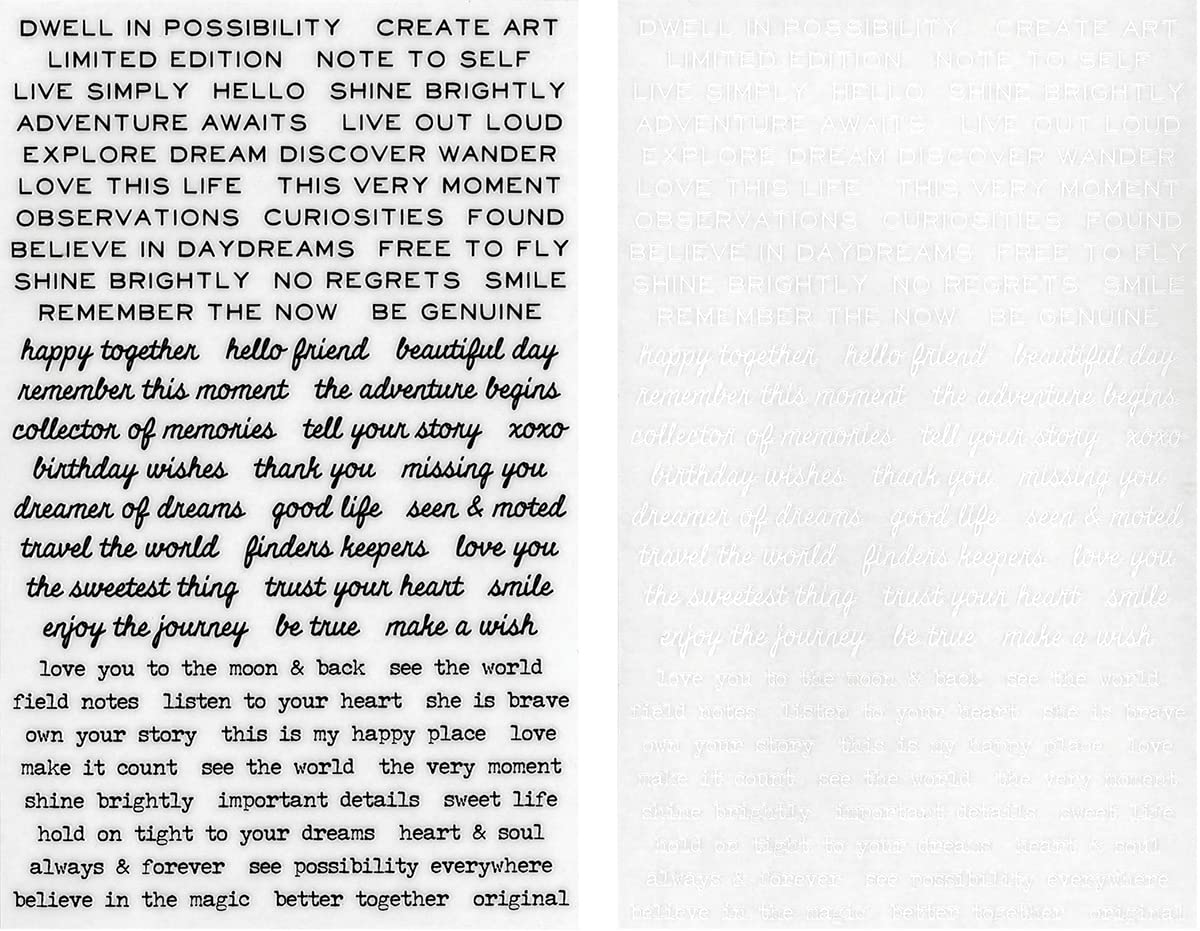 DWELL IN POSSIBILITY CREATE ART
LIMITED EDITION NOTE TO SELF
LIVE SIMPLY HELLO SHINE BRIGHTLY
ADVENTURE AWAITS LIVE OUT LOUD
EXPLORE DREAM DISCOVER WANDER
LOVE THIS LIFE THIS VERY MOMENT
OBSERVATIONS CURIOSITIES FOUND
BELIEVE IN DAYDREAMS FREE TO FLY
SHINE BRIGHTLY NO REGRETS SMILE
REMEMBER THE NOW BE GENUINE
happy together hello friend beautiful day
remember this moment the adventure begins
collector of memories tell your story xoxo
birthday wishes thank you missing you
dreamer of dreams good life seen & moted
travel the world finders keepers love you
the sweetest thing trust your heart smile
enjoy the journey be true make a wish
love you to the moon & back see the world
field notes listen to your heart she is brave
own your story this is my happy place love
make it count see the world the very moment
shine brightly important details sweet life
hold on tight to your dreams heart & soul
always & forever see possibility everywhere
believe in the magic better together original
DWELL IN POSSIBILITY CREATE ART
LIMITED EDITION NOTE TO SELF
LIVE SIMPLY HELLO SHINE BRIGHTLY
ADVENTURE AWAITS LIVE OUT LOUD
EXPLORE DREAM DISCOVER WANDER
LOVE THIS LIFE THIS VERY MOMENT
OBSERVATIONS CURIOSITIES FOUND
BELIEVE IN DAYDREAMS FREE TO FLY
SHINE BRIGHTLY NO REGRETS SMILE
REMEMBER THE NOW BE GENUINE
happy together hello friend beautiful day
remember this moment the adventure begins
collector of memories tell your story xoxo
birthday wishes thank you missing you
dreamer of dreams good life seen & moted
travel the world finders keepers love you
the sweetest thing trust your heart smile
enjoy the journey be true make a wish
love you to the moon & back see the world
field notes listen to your heart she is brave
own your story this is my happy place love
make it count see the world the very moment
shine brightly important details sweet life
hold on tight to your dreams heart & soul
always & forever see possibility everywhere
believe in the magic better together original